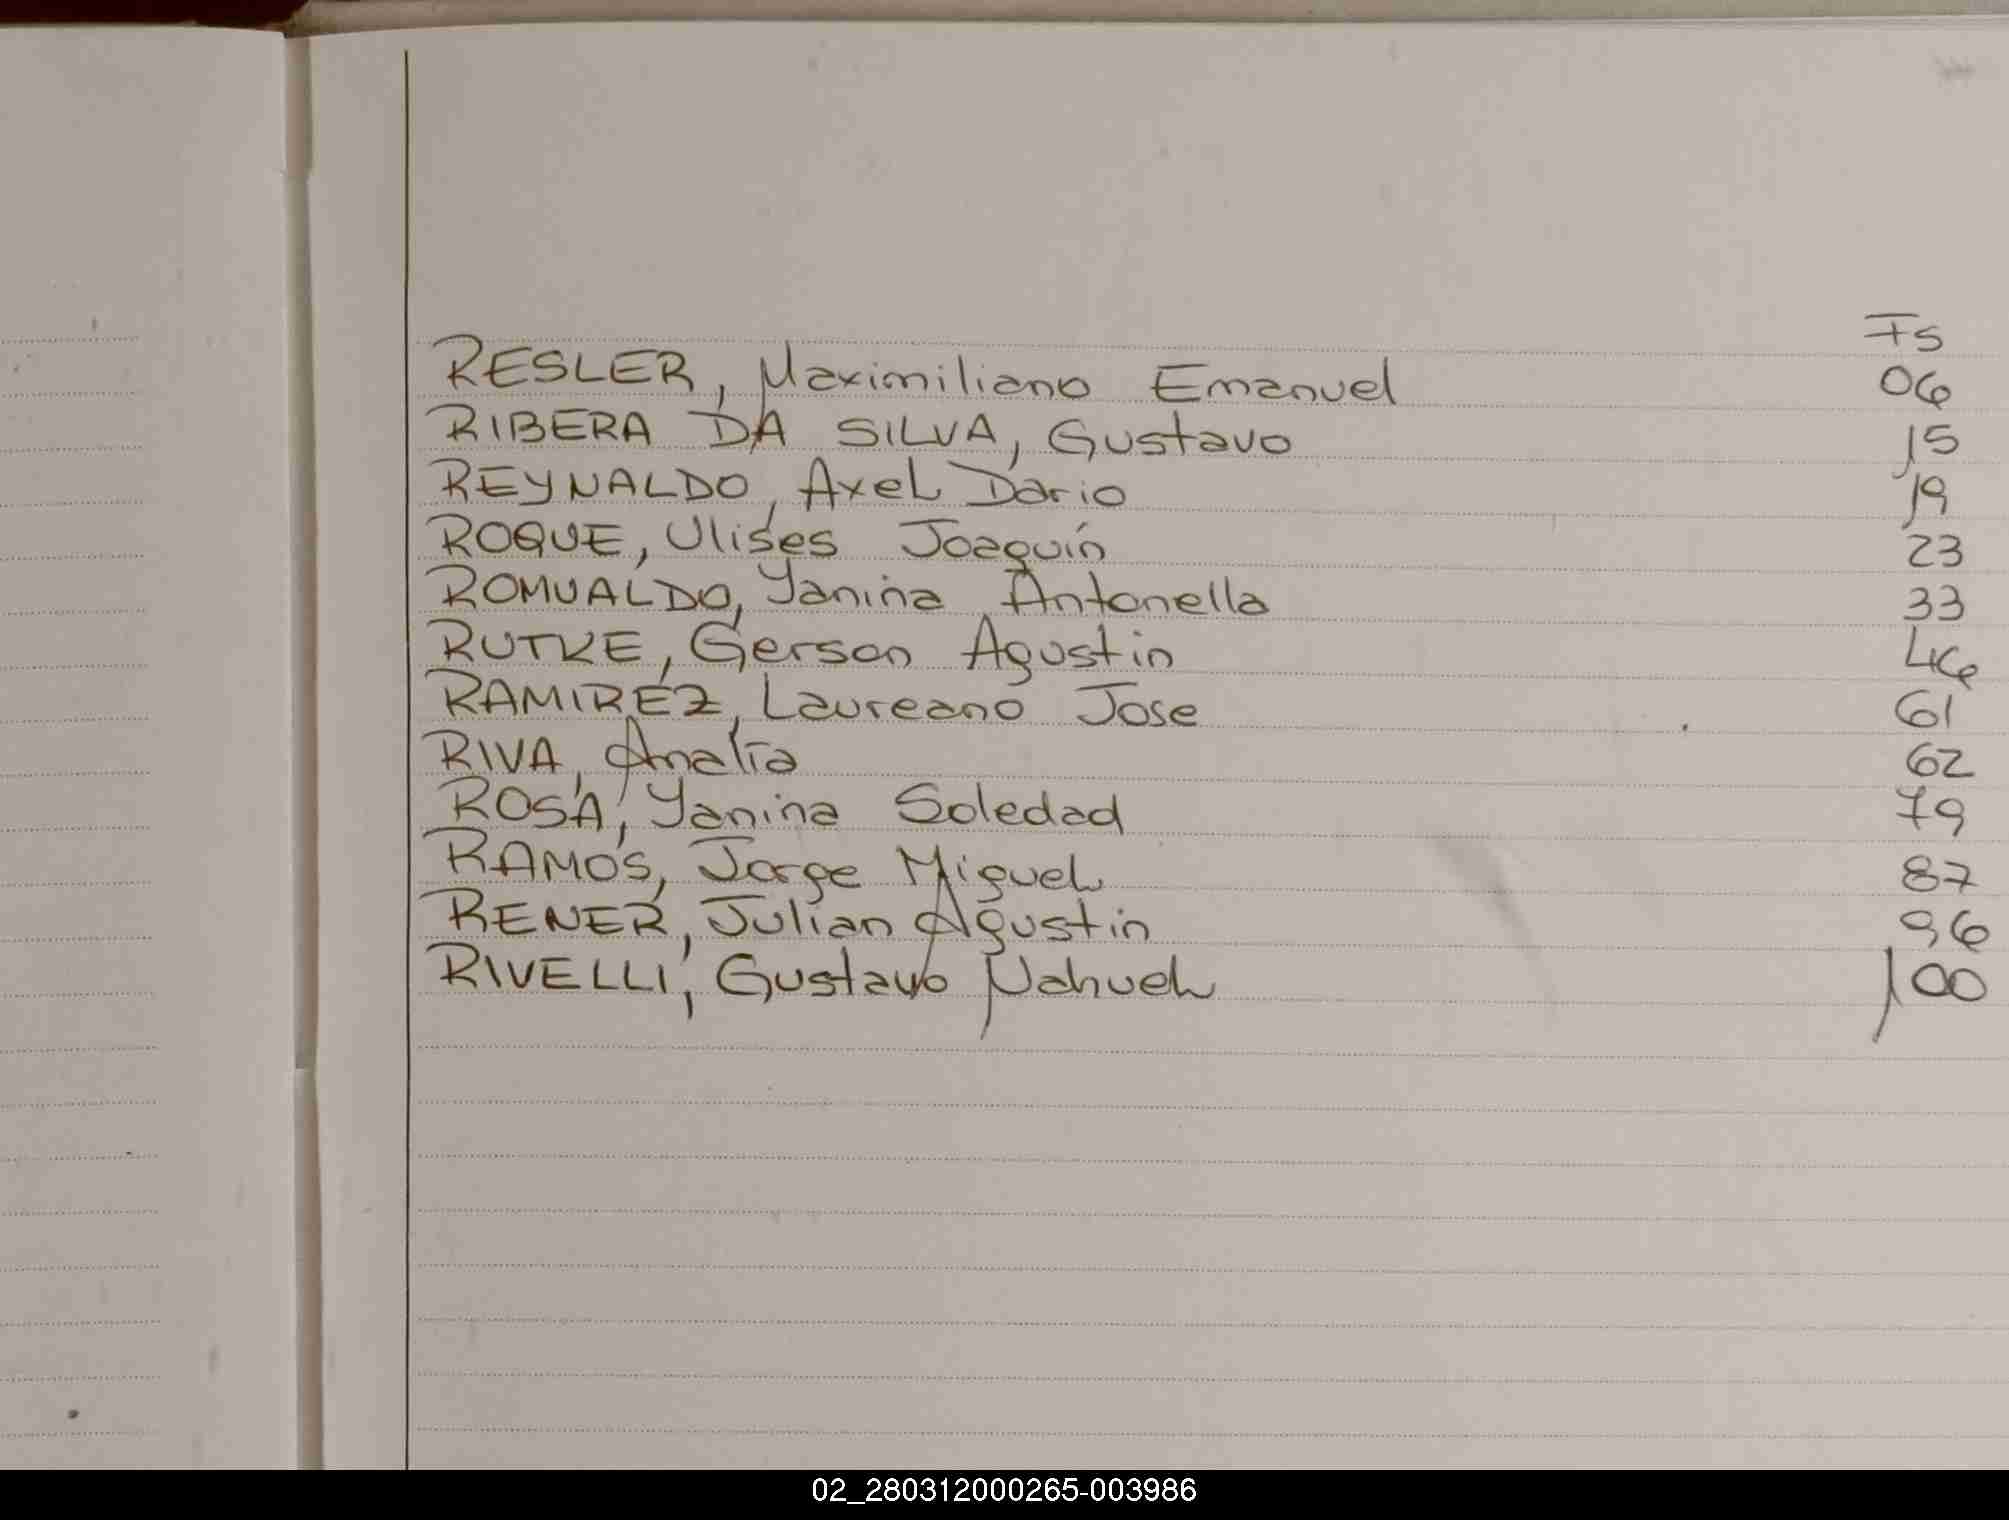 Fs
RESLER, Maximiliano Emanuel 06
RIBERA DA SILVA, Gustavo 15
REYNALDO, Axel Dario 19
ROQUE, Ulises Joaquín 23
ROMUALDO, Yanina Antonella 33
RUTKE, Gerson Agustin 46
RAMIREZ, Laureano Jose 61
RIVA, Analía 62
ROSA, Yanina Soledad 79
RAMOS, Jorge Miguel 87
RENER, Julian Agustin 96
RIVELLI, Gustavo Nahuel 100
02_280312000265-003986